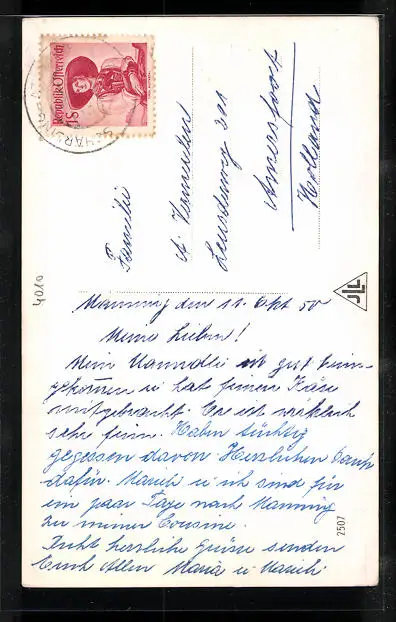 Republik Österreich
1 S
SCHÄRDING
Familie
A. Vermeulen
Leusderweg 201
Amersfoort
Holland
4010
Manning den 11. Okt 50
Meine Lieben!
Mein Mannalli ist gut heim-
gekommen u hat feinen Käse
mitgebracht. Er ist wirklich
sehr fein. Haben tüchtig
gegessen davon Herzlichen Dank
dafür. Mausli u ich sind für
ein paar Tage nach Manning
zu meiner Cousine.
Recht herzliche Grüsse senden
Euch Allen Maria u Mausli.
2507